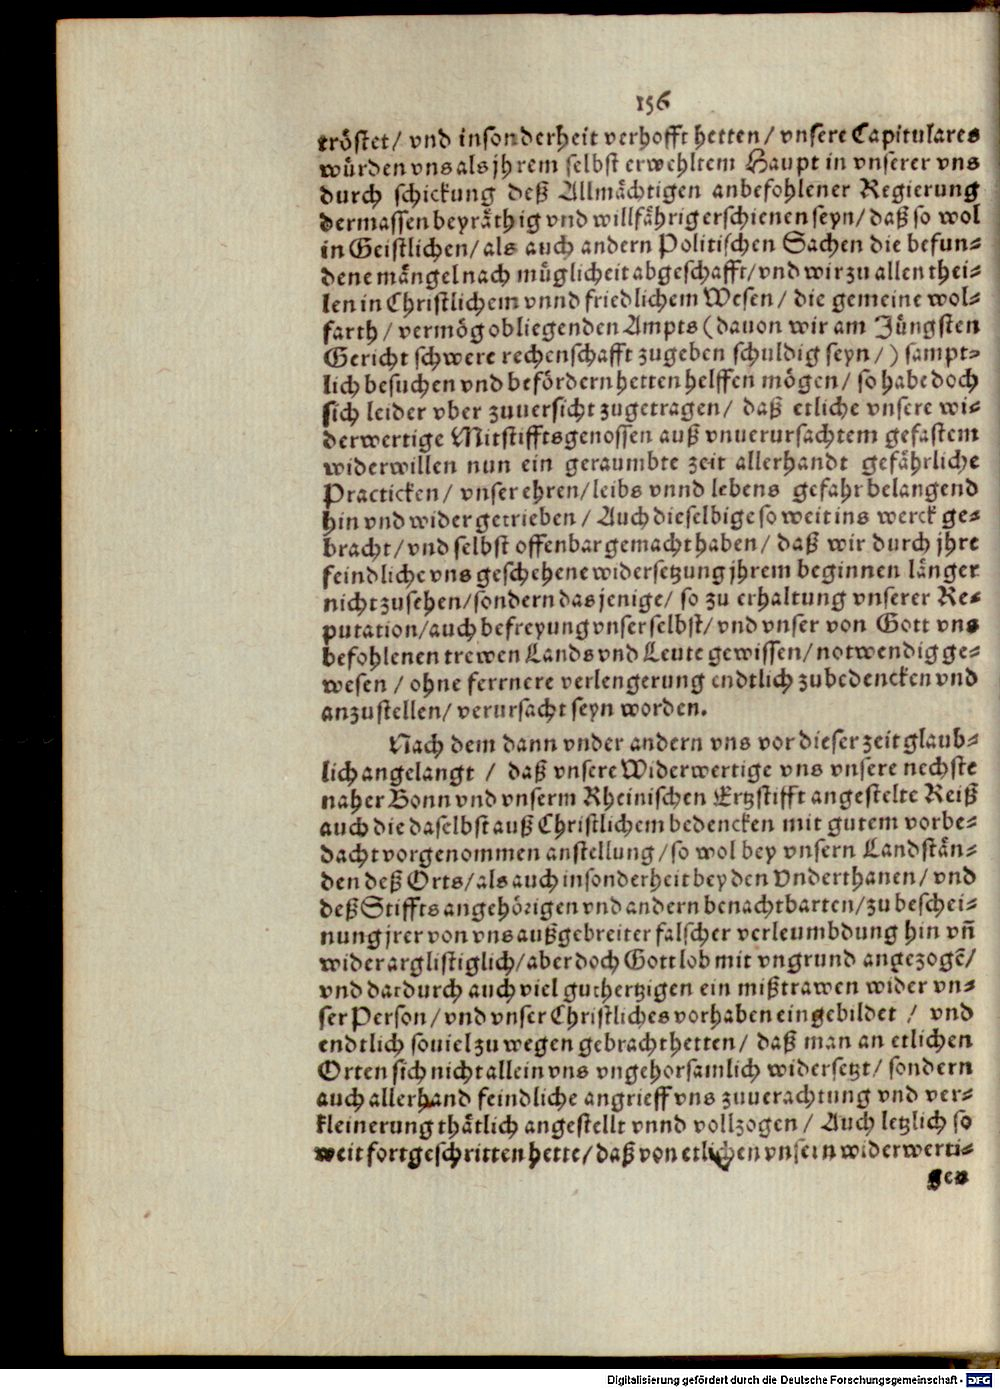 156
tröstet/ vnd insonderheit verhofft hetten/ vnsere Capitulares
würden vns als jhrem selbst erwehltem Haupt in vnserer vns
durch schickung deß Allmächtigen anbefohlener Regierung
dermassen beyräthig vnd willfährig erschienen seyn/ daß so wol
in Geistlichen/ als auch andern Politischen Sachen die befun-
dene mängel nach müglicheit abgeschafft/ vnd wir zu allen thei-
len in Christlichem vnnd friedlichem Wesen/ die gemeine wol-
farth/ vermög obliegenden Ampts (dauon wir am Jüngsten
Gericht schwere rechenschafft zugeben schuldig seyn/) sampt-
lich besuchen vnd befördern hetten helffen mögen/ so habe doch
sich leider vber zuuersicht zugetragen/ daß etliche vnsere wi-
derwertige Mitstifftsgenossen auß vnuerursachtem gefastem
widerwillen nun ein geraumbte zeit allerhandt gefährliche
Practicken/ vnser ehren/ leibs vnnd lebens gefahr belangend
hin vnd wider getrieben/ Auch dieselbige so weit ins werck ge-
bracht/ vnd selbst offenbar gemacht haben/ daß wir durch jhre
feindliche vns geschehene widersetzung jhrem beginnen länger
nicht zusehen/ sondern das jenige/ so zu erhaltung vnserer Re-
putation/ auch befreyung vnser selbst/ vnd vnser von Gott vns
befohlenen trewen Lands vnd Leute gewissen/ notwendig ge-
wesen/ ohne ferrnere verlengerung endtlich zubedencken vnd
anzustellen/ verursacht seyn worden.
Nach dem dann vnder andern vns vor dieser zeit glaub-
lich angelangt/ daß vnsere Widerwertige vns vnsere nechste
naher Bonn vnd vnserm Rheinischen Ertzstifft angestelte Reiß
auch die daselbst auß Christlichem bedencken mit gutem vorbe-
dacht vorgenommen anstellung/ so wol bey vnsern Landstän-
den deß Orts/ als auch insonderheit bey den Vnderthanen/ vnd
deß Stiffts angehörigen vnd andern benachtbarten/ zu beschei-
nung jrer von vns außgebreiter falscher verleumbdung hin vñ
wider arglistiglich/ aber doch Gott lob mit vngrund angezogẽ/
vnd dardurch auch viel guthertzigen ein mißtrawen wider vn-
ser Person/ vnd vnser Christliches vorhaben eingebildet/ vnd
endtlich souiel zu wegen gebracht hetten/ daß man an etlichen
Orten sich nicht allein vns vngehorsamlich widersetzt/ sondern
auch allerhand feindliche angrieff vns zuuerachtung vnd ver-
kleinerung thätlich angestellt vnnd vollzogen/ Auch letzlich so
weit fortgeschritten hette/ daß von etlichen vnsern widerwerti-
gen
Digitalisierung gefördert durch die Deutsche Forschungsgemeinschaft - DFG